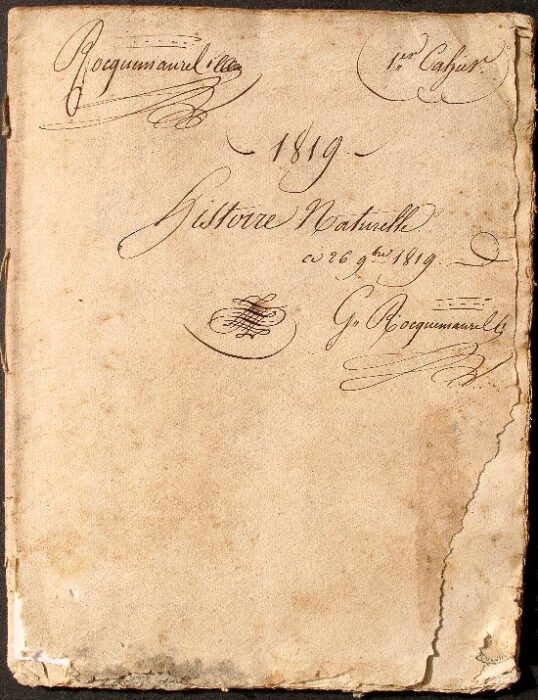 Rocquemaurel
1.er Cahier.
- 1819 -
Histoire Naturelle
ce 26 9bre 1819.
Gn Rocquemaurel